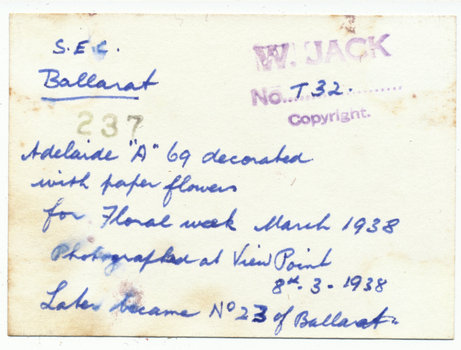 S.E.C.
Ballarat
W. JACK
No. T32.
Copyright.
237
Adelaide "A" 69 decorated
with paper flowers
for Floral week March 1938
Photographed at View Point
8th.3.1938
Later became No 23 of Ballarat